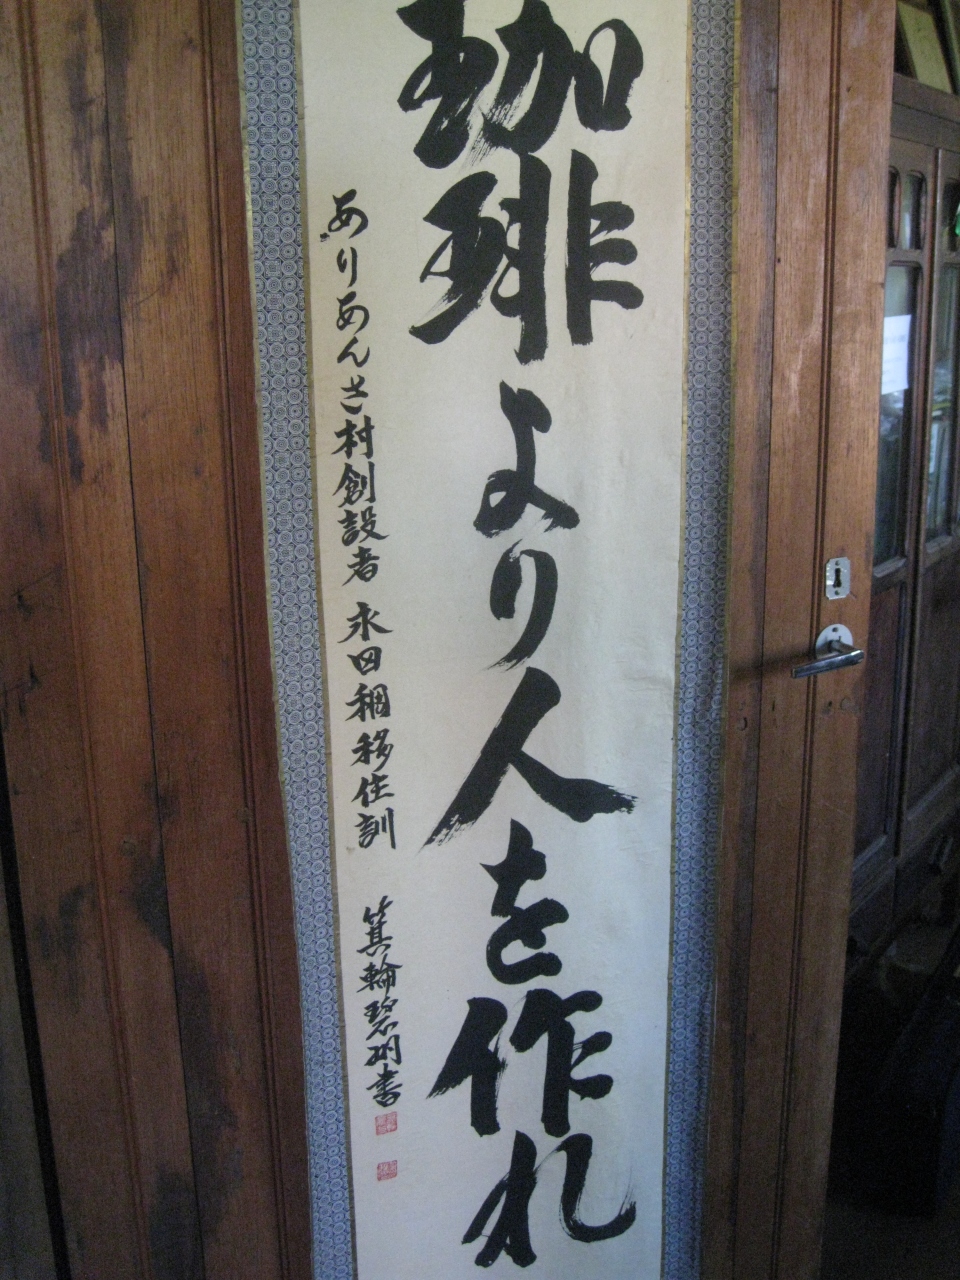 珈琲より人を作れ
ありあんさ村創設者 永田稠移住訓
箕輪碧洲書